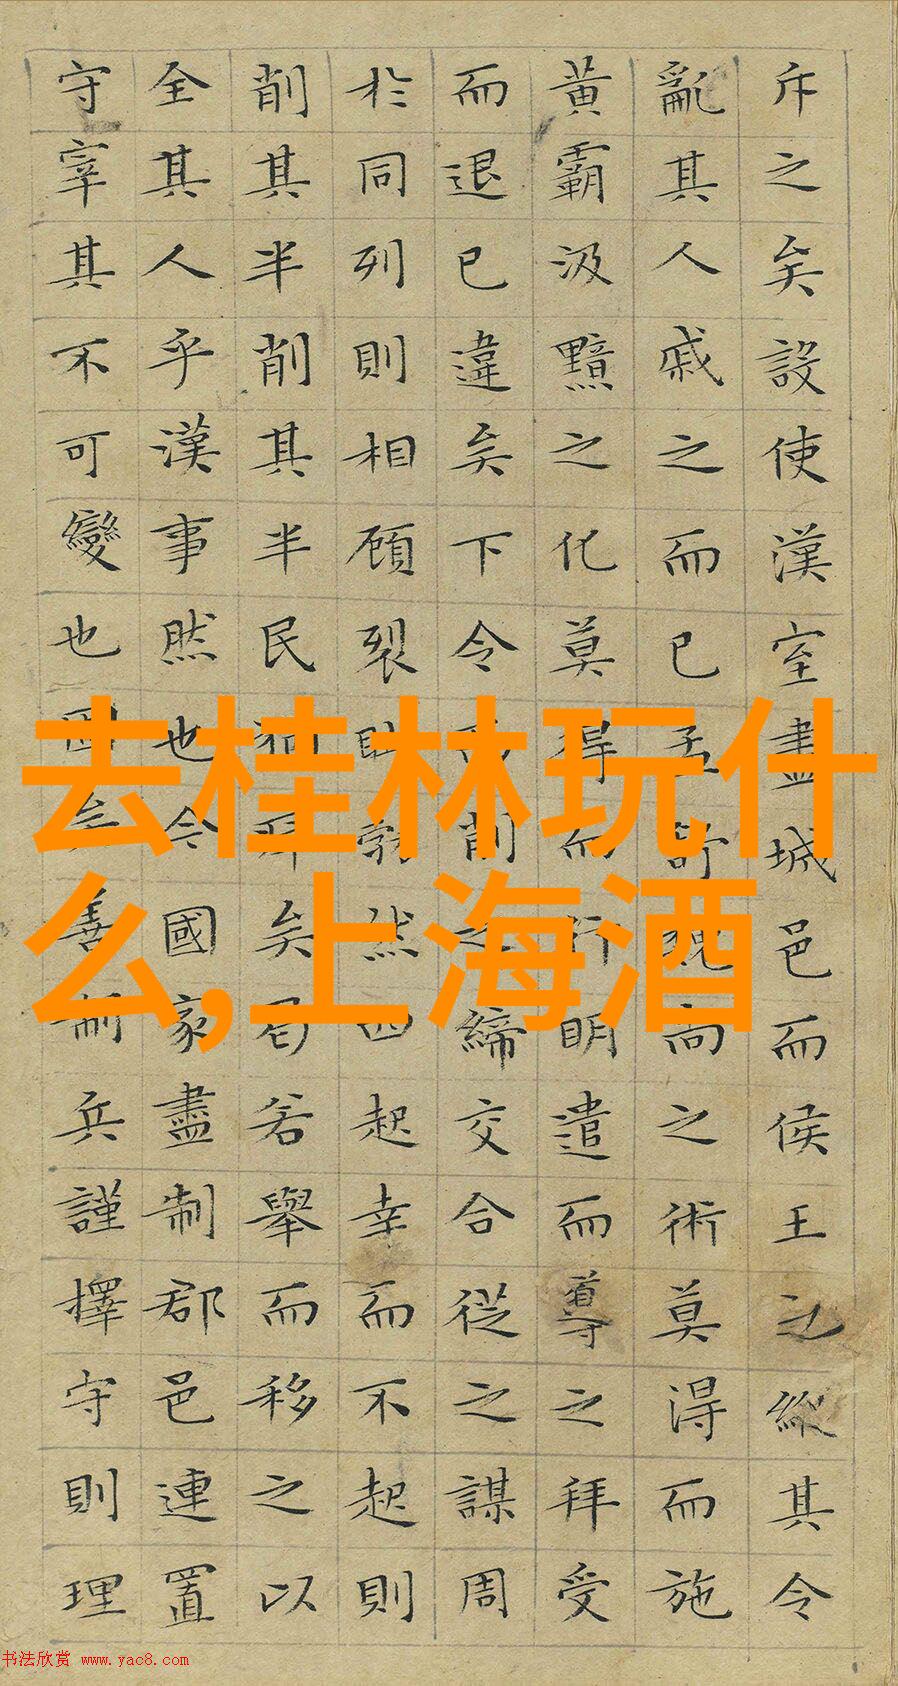 斥之矣設使漢室盡城邑而侯王之縱其令
亂其人戚之而已孟舒魏尚之術莫得而施
黃霸汲黯之化莫得而行明遣而導之拜受
而退已違矣下令而削之締交合從之謀周
於同列則相顧裂眥勃然起幸而不起則
削其半削其半民猶瘁矣曷若舉而移之以
全其人乎漢事然也今國家盡制郡邑連置
守宰其不可變也固矣善制兵謹擇守則理
去桂林玩什
么,上海酒
书法欣赏 www.yac8.com